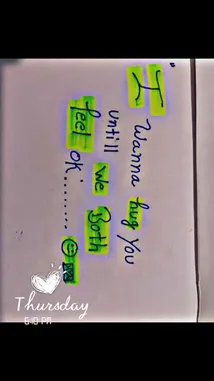 "I Wanna hug You
untill We Both
feel OK.........
Thursday
6:10 PM